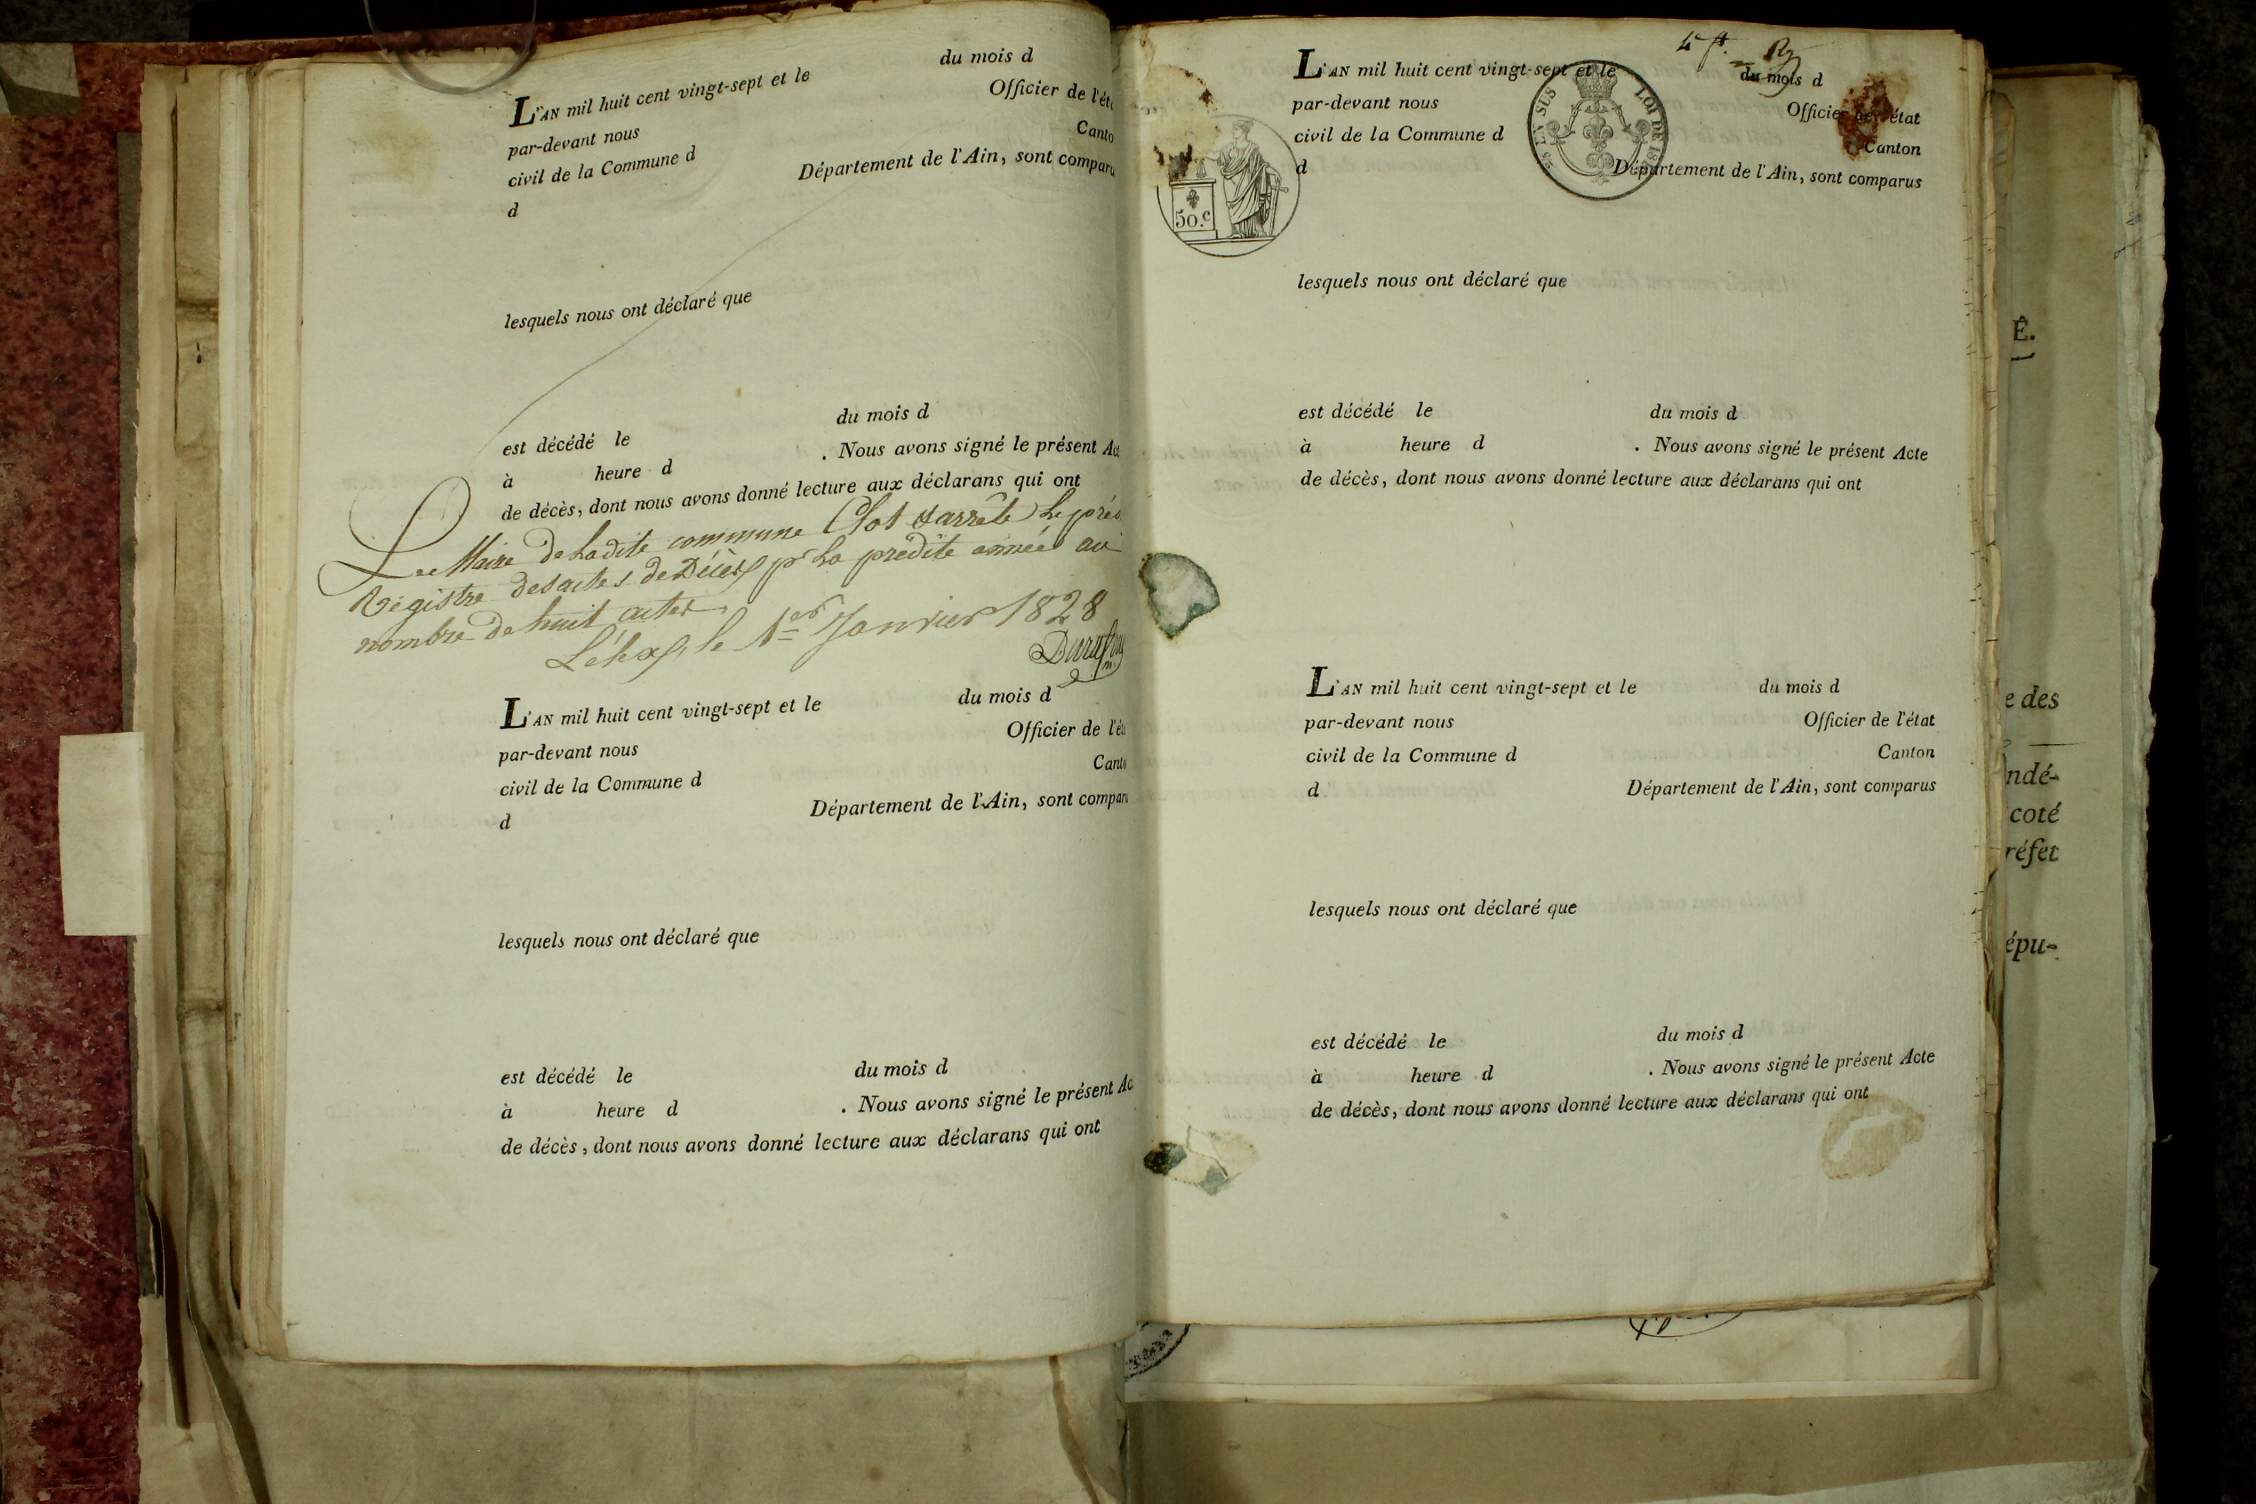 L'AN mil huit cent vingt-sept et le du mois d
par-devant nous Officier de l'éta
civil de la Commune d Canto
d Département de l'Ain, sont comparu
lesquels nous ont déclaré que
est décédé le du mois d
à heure d . Nous avons signé le présent Act
de décès, dont nous avons donné lecture aux déclarans qui ont
Le Maire de Ladite commune Clot & arrête le prés
Régistre des actes de Décès pr la predite année au
nombre de huit actes
Léhex, le 1er Janvier 1828
L'AN mil huit cent vingt-sept et le du mois d
par-devant nous Officier de l'éta
civil de la Commune d Canto
d Département de l'Ain, sont comparu
lesquels nous ont déclaré que
est décédé le du mois d
à heure d . Nous avons signé le présent Ac
de décès, dont nous avons donné lecture aux déclarans qui ont
L'AN mil huit cent vingt-sept et le du mois d
par-devant nous Officier de l'état
civil de la Commune d Canton
d Département de l'Ain, sont comparus
EN SUS LOI DE
50.c
lesquels nous ont déclaré que
est décédé le du mois d
à heure d . Nous avons signé le présent Acte
de décès, dont nous avons donné lecture aux déclarans qui ont
L'AN mil huit cent vingt-sept et le du mois d
par-devant nous Officier de l'état
civil de la Commune d Canton
d Département de l'Ain, sont comparus
lesquels nous ont déclaré que
est décédé le du mois d
à heure d . Nous avons signé le présent Acte
de décès, dont nous avons donné lecture aux déclarans qui ont
Ê.
e des
ndé-
coté
réfet
épu-